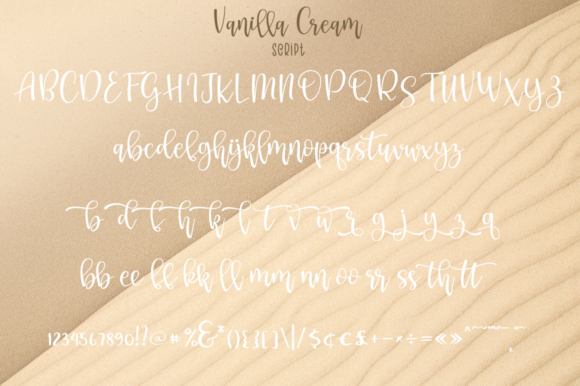 Vanilla Cream
SCRIPT
ABCDEFGHIJKLMNOPQRSTUVWXYZ
abcdefghijklmnopqrstuvwxyz
b d f h k l t v w g j y z q
bb ee ff kk ll mm nn oo rr ss th tt
1234567890!?@#%&*(){}[]\|/$¢€£+-×÷=«»